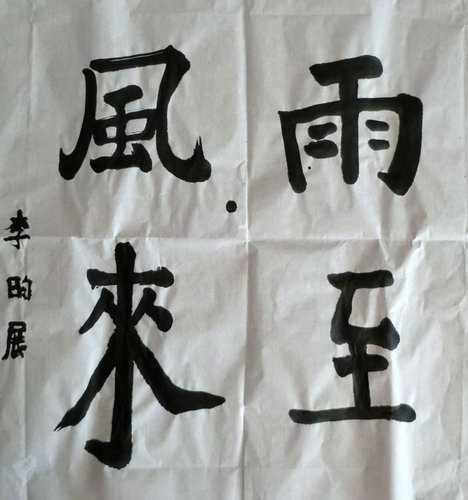 雨至
風來
李昀展